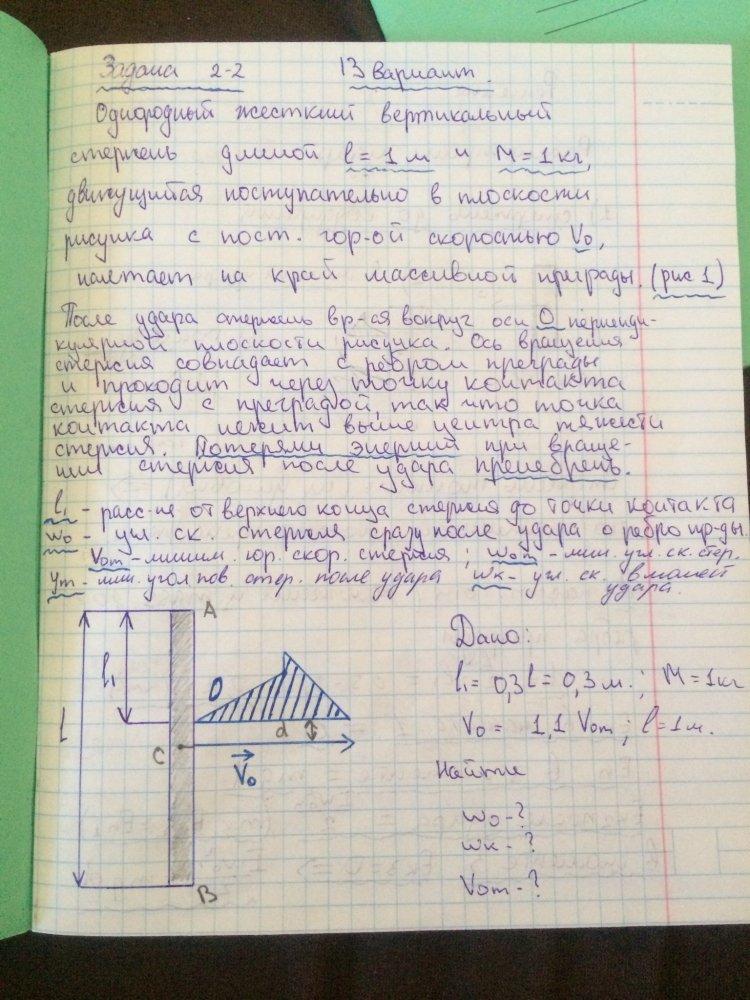 Задача 2-2 13 вариант.
Однородный жесткий вертикальный
стержень длиной l = 1 м и M = 1 кг,
движущийся поступательно в плоскости
рисунка с пост. гор-ой скоростью V₀,
налетает на край массивной преграды. (рис 1)
После удара стержень вр-ся вокруг оси О перпенди-
кулярной плоскости рисунка. Ось вращения
стержня совпадает с ребром преграды
и проходит через точку контакта
стержня с преградой, так что точка
контакта лежит выше центра тяжести
стержня. Потерями энергии при враще-
нии стержня после удара пренебречь.
l₁ - расс-ие от верхнего конца стержня до точки контакта
w₀ - угл. ск. стержня сразу после удара о ребро пр-ды.
V₀m - миним. гор. скор. стержня; w₀m - мин. угл. ск. стер.
φm - мин. угол пов стер. после удара wк - угл. ск. в момент
удара.
A
l₁
l
O
d
C
V₀
B
Дано:
l₁ = 0,3l = 0,3 м.; M = 1кг
V₀ = 1,1 V₀m; l = 1м.
Найти
w₀ - ?
wк - ?
V₀m - ?